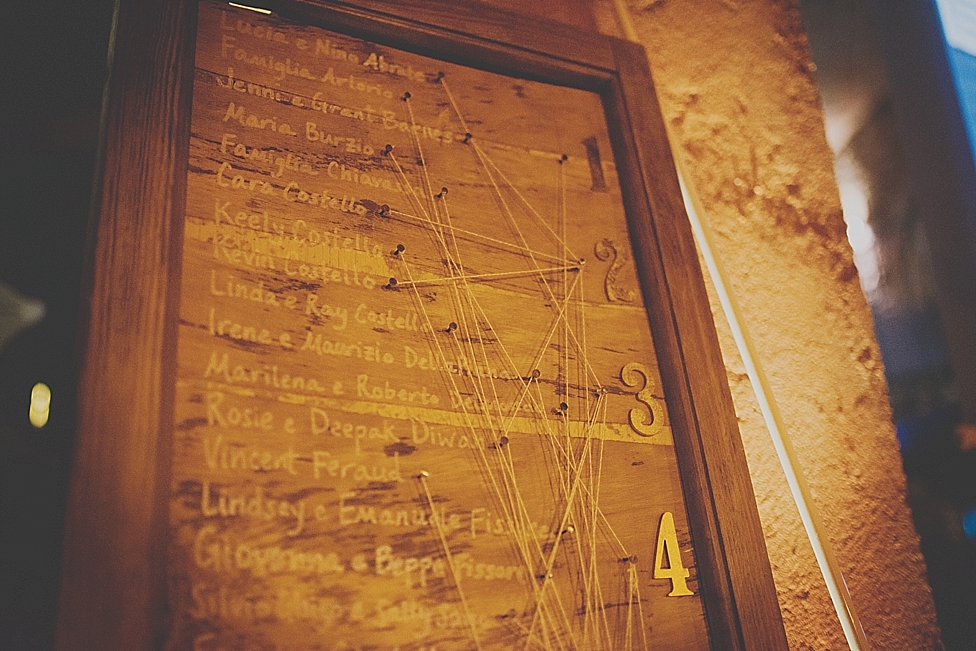 Lucia e Nino Abrate
Famiglia Artorio
Jenni e Grant Barnes
Maria Burzio
Famiglia Chiavas
Cara Costello
Keely Costello
Kevin Costello
Linda e Ray Costello
Irene e Maurizio
Marilena e Roberto
Rosie e Deepak Diwa
Vincent Feraud
Lindsey e Emanuele Fissore
Giovanna e Beppe Fissore
e Sally
1
2
3
4